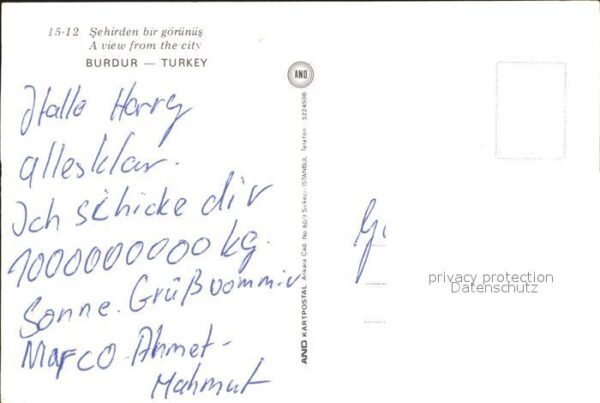 15-12 Şehirden bir görünüş
A view from the city
BURDUR — TURKEY
Hallo Harry
alles klar.
Ich schicke dir
1000000000 kg.
Sonne. Grüß vom mir
Marco. Ahmet-
Mahmut
AND
AND KARTPOSTAL Ankara Cad. No 60/1 Sirkeci-İSTANBUL Telefon: 5224508
privacy protection
Datenschutz